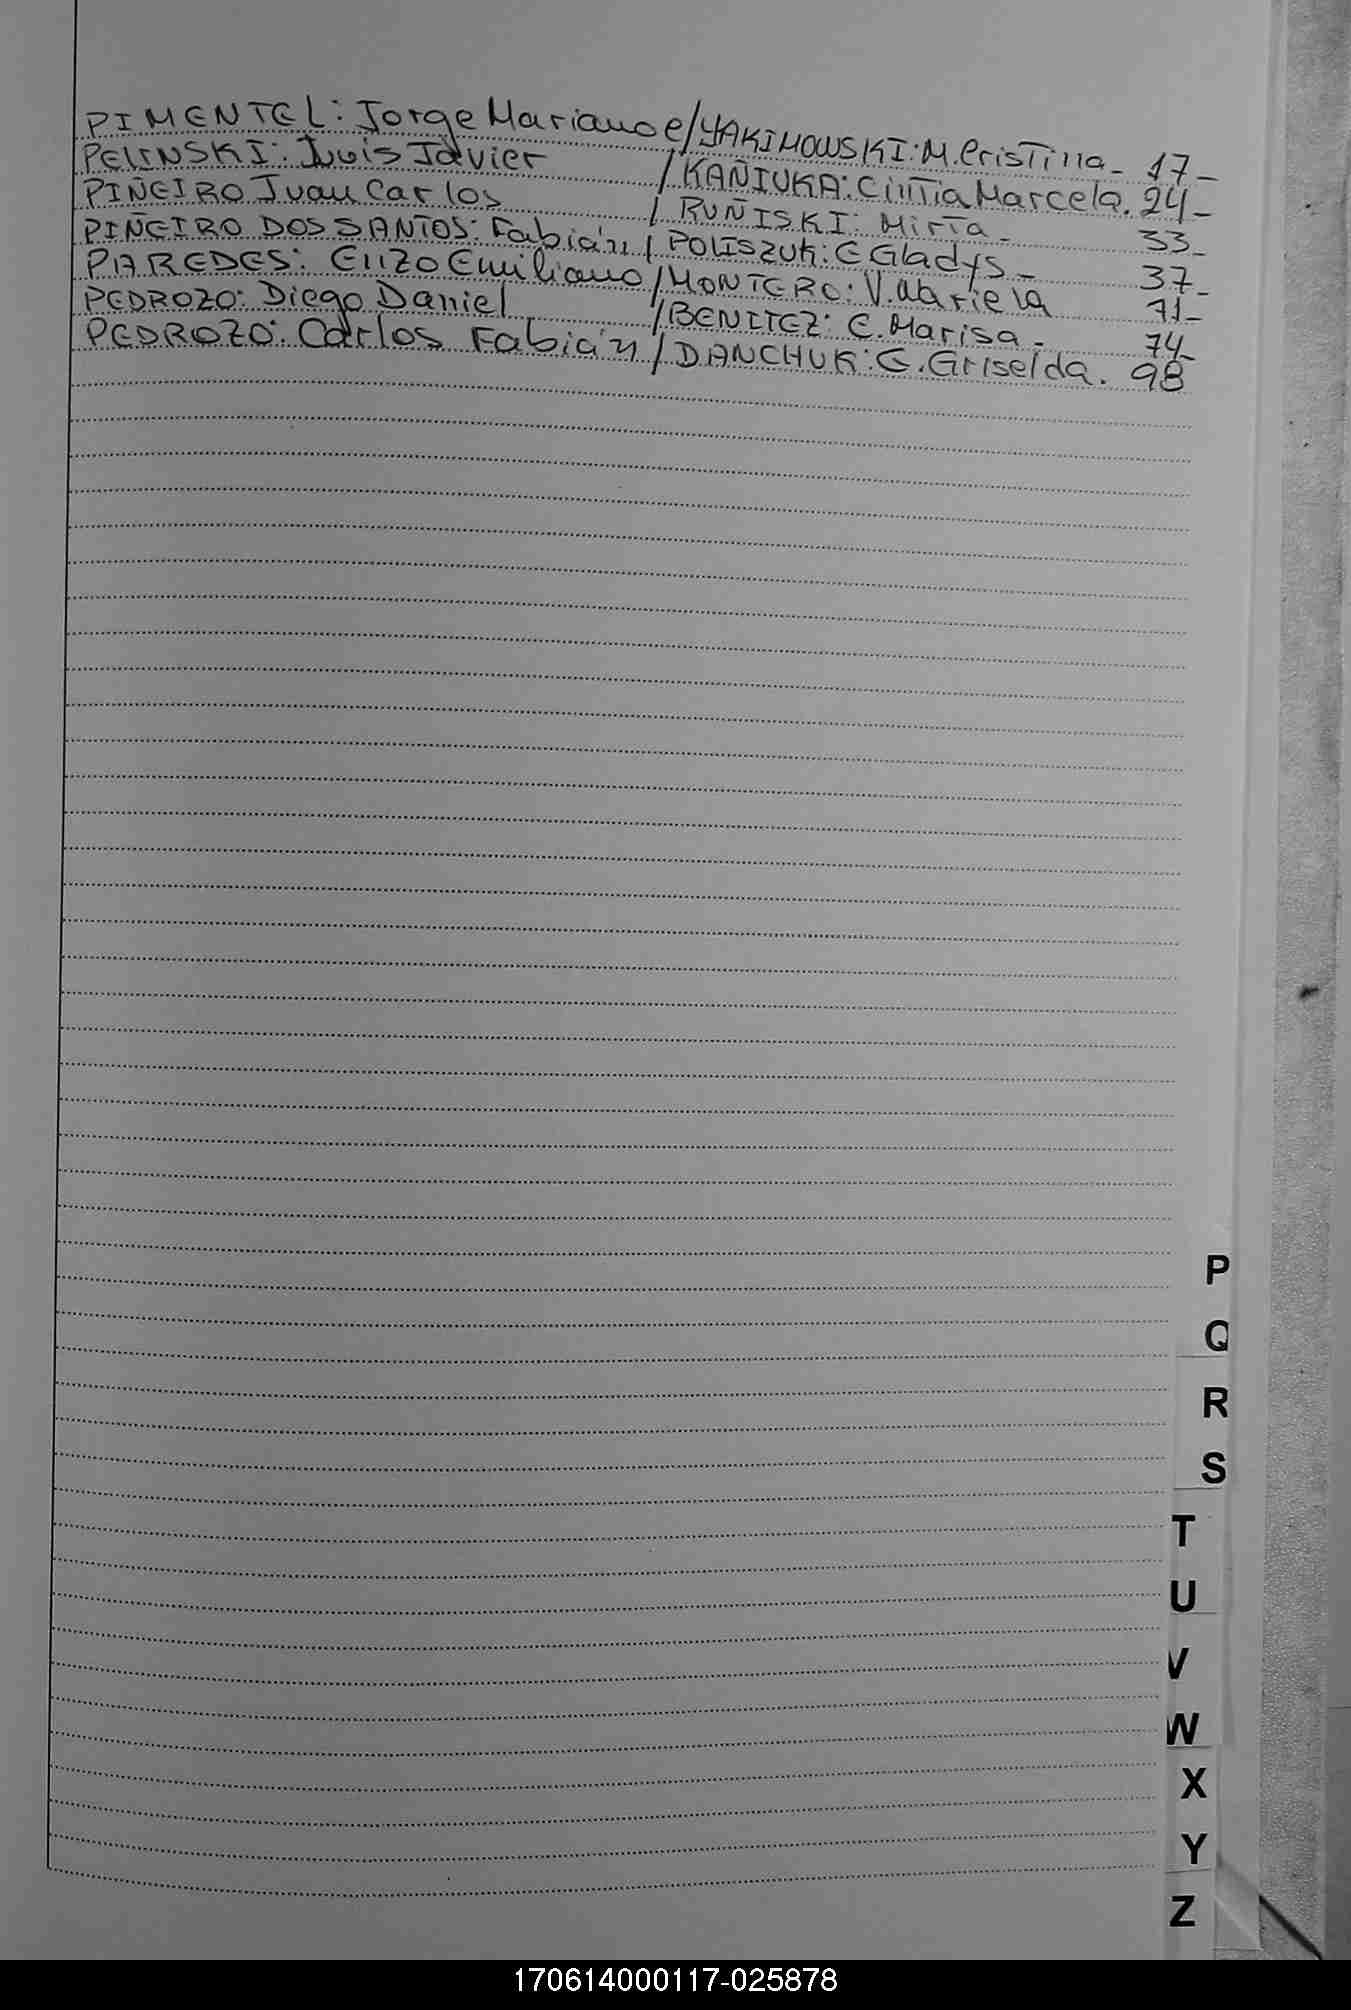 PIMENTEL: Jorge Mariano e/YAKIMOWSKI: M. Cristina_ 17_
PELINSKI: Luis Javier /KAÑIUKA: Cintia Marcela. 24_
PIÑEIRO Juan Carlos / RUÑISKI: Mirta_ 33_
PIÑEIRO DOS SANTOS: Fabián / POLISZUK: E Gladys_ 37_
PAREDES: Enzo Emiliano /MONTERO: V. 71_
PEDROZO: Diego Daniel /BENITEZ: E. Marisa_ 74_
PEDROZO: Carlos Fabián / DANCHUK: G. Griselda. 98
P
Q
R
S
T
U
V
W
X
Y
Z
170614000117-025878